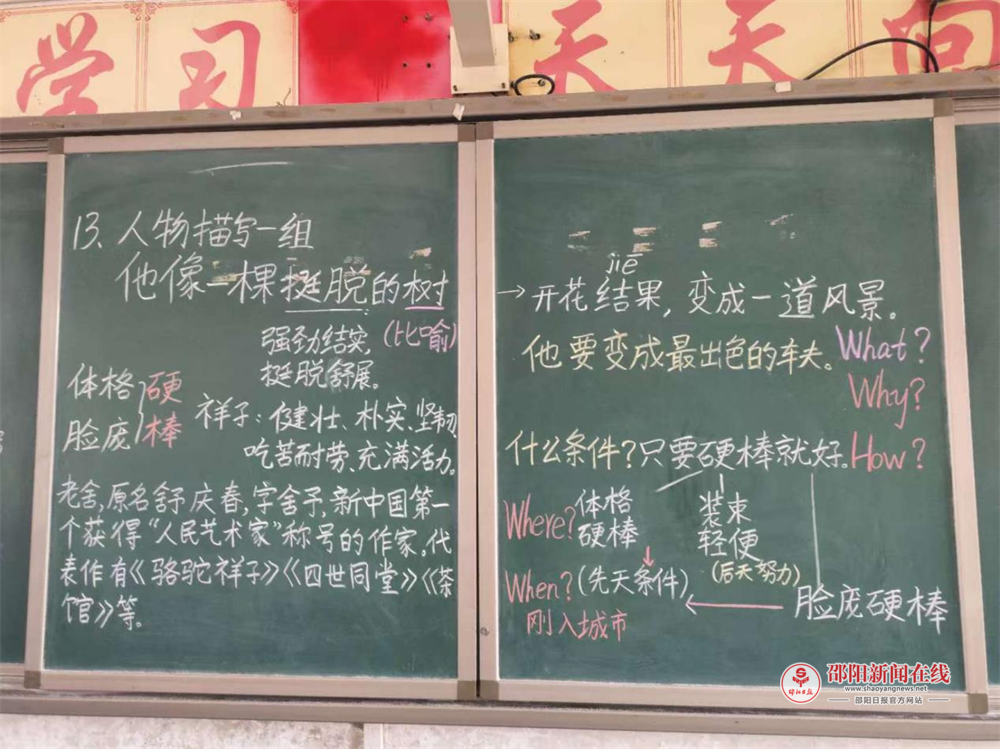 学习 天天向
13、人物描写一组
他像一棵挺脱的树
强劲结实, (比喻)
挺脱舒展。
体格 硬
脸庞 棒
祥子:健壮、朴实、坚韧
吃苦而耐劳、充满活力。
老舍,原名舒庆春,字舍予,新中国第一
个获得“人民艺术家”称号的作家。代
表作有《骆驼祥子》《四世同堂》《茶
馆》等。
jiē
→开花结果,变成一道风景。
他要变成最出色的车夫。What?
Why?
什么条件?只要硬棒就好。How?
Where? 体格 装束
硬棒 轻便
When? (先天条件) (后天努力)
刚入城市
脸庞硬棒
邵阳日报
邵阳新闻在线
www.shaoyangnews.net
邵阳日报官方网站